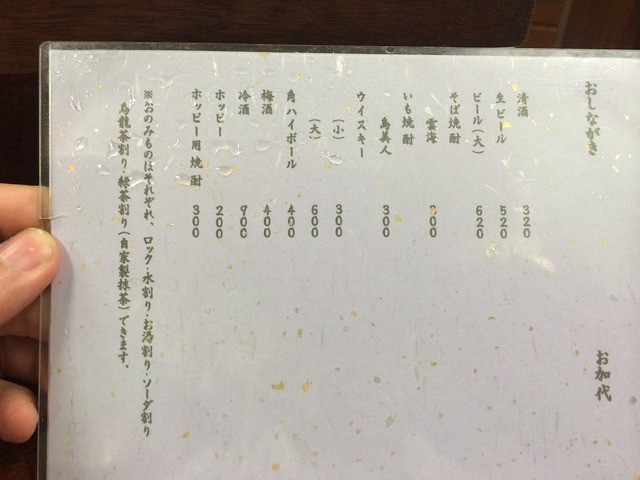 おしながき
お加代
清酒 320
生ビール 520
ビール(大) 620
そば焼酎
雲海 300
いも焼酎
島美人 300
ウイスキー
(小) 300
(大) 600
角ハイボール 400
梅酒 400
冷酒 900
ホッピー 200
ホッピー用焼酎 300
※おのみものはそれぞれ、ロック・水割り・お湯割り・ソーダ割り
烏龍茶割り・緑茶割り(自家製抹茶)できます。